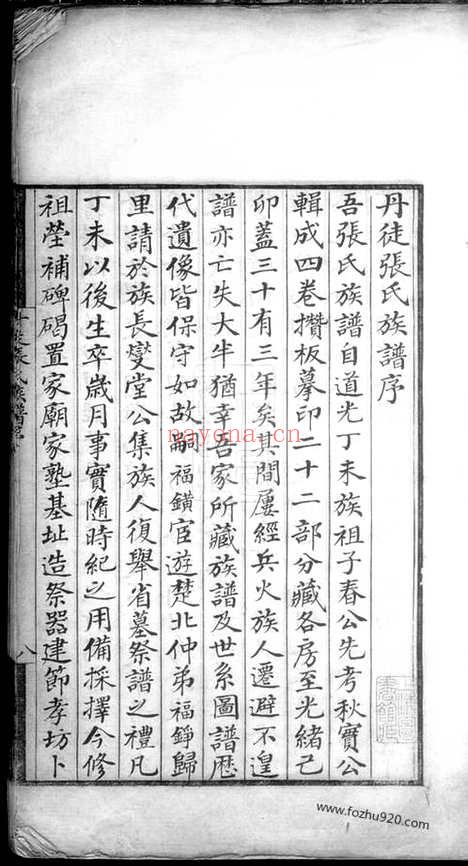 丹徒張氏族譜序
吾張氏族譜自道光丁未族祖子春公先考秋實公
輯成四卷攢板摹印二十二部分藏各房至光緒己
卯蓋三十有三年矣其間屢經兵火族人遷避不遑
譜亦亡失大半猶幸吾家所藏族譜及世系圖譜歷
代遺像皆保守如故嗣福鐄宦遊楚北仲弟福錚歸
里請於族長燮堂公集族人復舉省墓祭譜之禮凡
丁未以後生卒歲月事實隨時紀之用備採擇今修
祖塋補碑碣置家廟家塾基址造祭器建節孝坊卜
八
nayona.cn
www.fozhu920.com